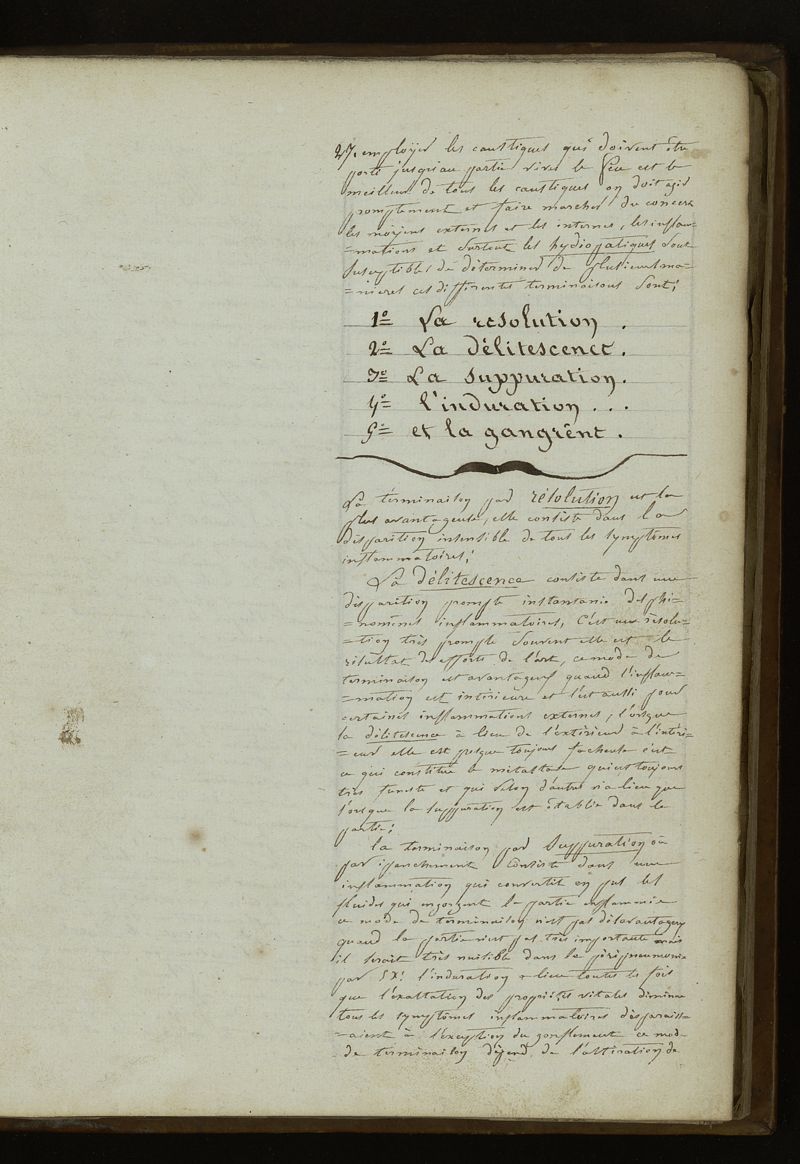 27. employer les caustiques qui doivent être
porté jusqu'au partie vives le feu est le
meilleur de tous les caustiques on doit agir
promptement et faire marcher de concert
les moyens externes et les internes, les inflam=
=mations et surtout les hydiopatiques sont
susceptibles de déterminer de plusieurs ma=
=nieres ces differentes terminaisons sont;
1º La resolution .
2º La délitescence .
3º La suppuration .
4º l'induration . . .
5º et la gangrène .
La terminaison par résolution est la
plus avantageuse, elle consiste dans la
disparition insensible de tous les symptomes
inflammatoires;
La délitescence consiste dans une
disparition prompte instantanie des phé=
=nomènes inflammatoires, C'est une résolu=
=tion très prompte souvent elle est le
résultat de efforts de l'art, ce mode de
terminaison est avantageux quand l'inflam=
=mation est intérieure et l'est aussi pour
certaines inflammations externes, lorsque
la délitescence à lieu de l'extérieur à l'intéri=
=eur elle est presque toujours facheuse c'est
ce qui constitue la métastase qui est toujours
très funeste et qui selon d'autres n'a lieu que
lorsque la suppuration est établie dans la
partie;
la terminaison par Suppuration ou
par épanchement consiste dans une
inflammation qui convertit en pus les
fluides qui engorgent la partie enflammée
ce mode de terminaison n'est pas désavantageux
quand la partie n'est pas très importante mais
il serait très nuisible dans la péripneumonie
par EX! l'induration a lieu toutes les fois
que l'exaltation des propriétés vitales diminue
tous les symptômes inflammatoires disparaiss=
=aient à l'exception du gonflement ce mode
de terminaison dépend de l'altération de